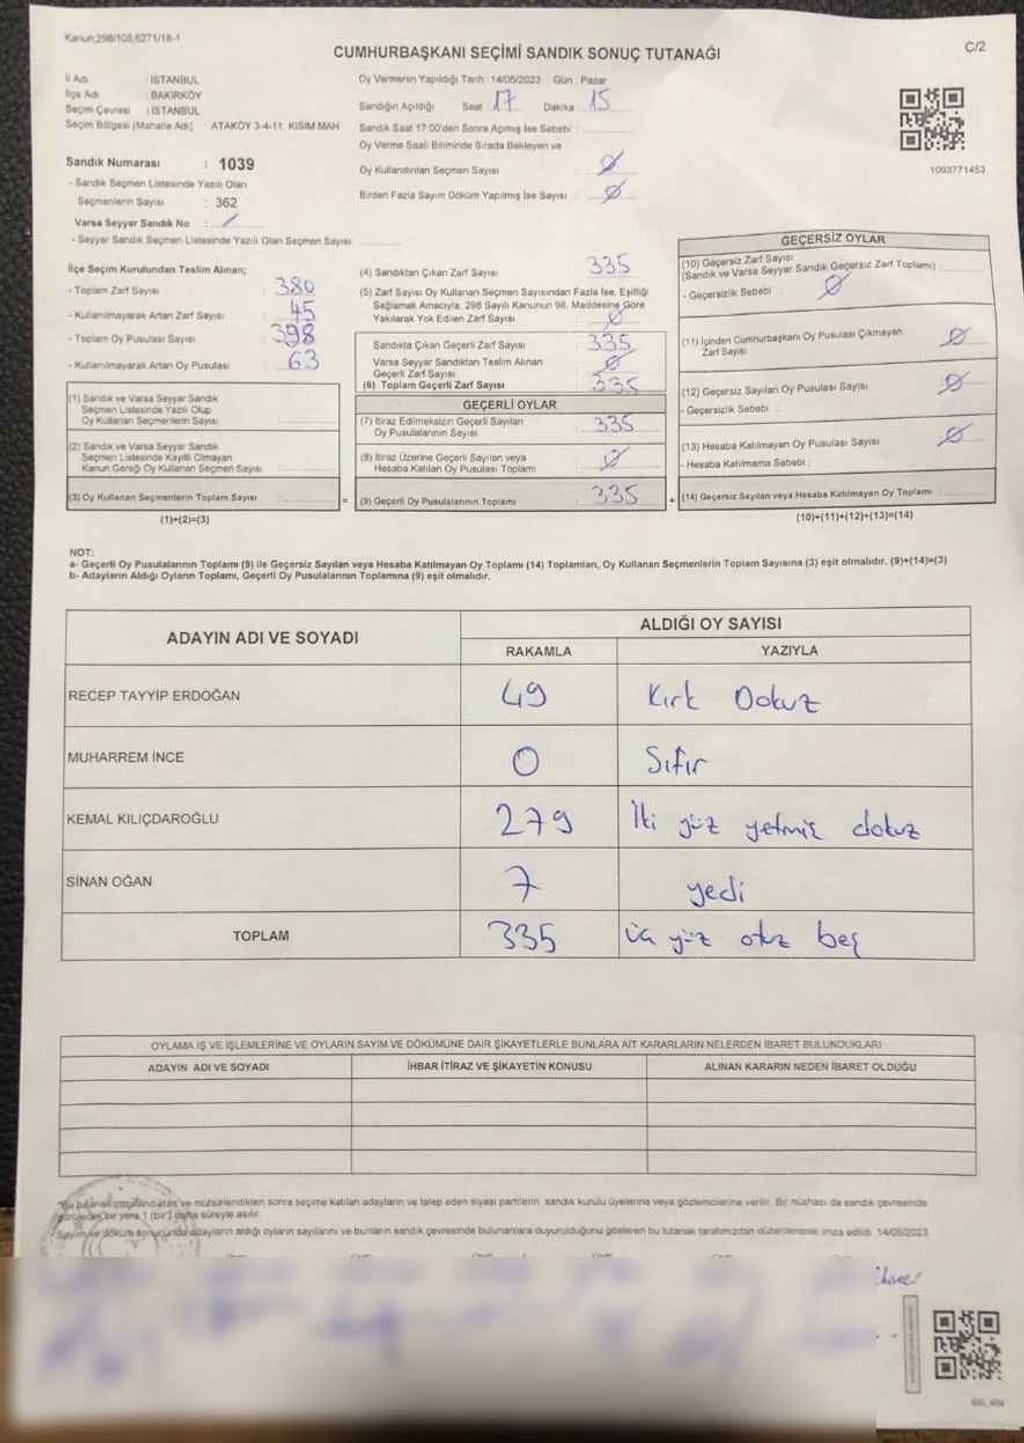 Kanun:298/105,6271/18-1
CUMHURBAŞKANI SEÇİMİ SANDIK SONUÇ TUTANAĞI
C/2
İl Adı : İSTANBUL
İlçe Adı : BAKIRKÖY
Seçim Çevresi : İSTANBUL
Seçim Bölgesi (Mahalle Adı) : ATAKÖY 3-4-11. KISIM MAH
Sandık Numarası : 1039
- Sandık Seçmen Listesinde Yazılı Olan
Seçmenlerin Sayısı : 362
Varsa Seyyar Sandık No : /
- Seyyar Sandık Seçmen Listesinde Yazılı Olan Seçmen Sayısı
Oy Vermenin Yapıldığı Tarih : 14/05/2023 Gün : Pazar
Sandığın Açıldığı Saat 17 Dakika 15
Sandık Saat 17:00'den Sonra Açılmış İse Sebebi :
Oy Verme Saati Bitiminde Sırada Bekleyen ve
Oy Kullandırılan Seçmen Sayısı : Ø
Birden Fazla Sayım Döküm Yapılmış İse Sayısı : Ø
1093771453
İlçe Seçim Kurulundan Teslim Alınan;
- Toplam Zarf Sayısı : 380
- Kullanılmayarak Artan Zarf Sayısı : 45
- Toplam Oy Pusulası Sayısı : 398
- Kullanılmayarak Artan Oy Pusulası : 63
(1) Sandık ve Varsa Seyyar Sandık
Seçmen Listesinde Yazılı Olup
Oy Kullanan Seçmenlerin Sayısı
(2) Sandık ve Varsa Seyyar Sandık
Seçmen Listesinde Kayıtlı Olmayan
Kanun Gereği Oy Kullanan Seçmen Sayısı
(3) Oy Kullanan Seçmenlerin Toplam Sayısı
(1)+(2)=(3)
(4) Sandıktan Çıkan Zarf Sayısı : 335
(5) Zarf Sayısı Oy Kullanan Seçmen Sayısından Fazla İse, Eşitliği
Sağlamak Amacıyla, 298 Sayılı Kanunun 98. Maddesine Göre
Yakılarak Yok Edilen Zarf Sayısı : Ø
Sandıkta Çıkan Geçerli Zarf Sayısı : 335
Varsa Seyyar Sandıktan Teslim Alınan
Geçerli Zarf Sayısı : Ø
(6) Toplam Geçerli Zarf Sayısı : 335
GEÇERLİ OYLAR
(7) İtiraz Edilmeksizin Geçerli Sayılan
Oy Pusulalarının Sayısı : 335
(8) İtiraz Üzerine Geçerli Sayılan veya
Hesaba Katılan Oy Pusulası Toplamı : Ø
= (9) Geçerli Oy Pusulalarının Toplamı : 335
GEÇERSİZ OYLAR
(10) Geçersiz Zarf Sayısı
(Sandık ve Varsa Seyyar Sandık Geçersiz Zarf Toplamı)
- Geçersizlik Sebebi : Ø
(11) İçinden Cumhurbaşkanı Oy Pusulası Çıkmayan
Zarf Sayısı : Ø
(12) Geçersiz Sayılan Oy Pusulası Sayısı : Ø
- Geçersizlik Sebebi :
(13) Hesaba Katılmayan Oy Pusulası Sayısı : Ø
- Hesaba Katılmama Sebebi :
+ (14) Geçersiz Sayılan veya Hesaba Katılmayan Oy Toplamı :
(10)+(11)+(12)+(13)=(14)
NOT:
a- Geçerli Oy Pusulalarının Toplamı (9) ile Geçersiz Sayılan veya Hesaba Katılmayan Oy Toplamı (14) Toplamları, Oy Kullanan Seçmenlerin Toplam Sayısına (3) eşit olmalıdır. (9)+(14)=(3)
b- Adayların Aldığı Oyların Toplamı, Geçerli Oy Pusulalarının Toplamına (9) eşit olmalıdır.
ADAYIN ADI VE SOYADI
ALDIĞI OY SAYISI
RAKAMLA YAZIYLA
RECEP TAYYİP ERDOĞAN 49 Kırk Dokuz
MUHARREM İNCE 0 Sıfır
KEMAL KILIÇDAROĞLU 279 İki yüz yetmiş dokuz
SİNAN OĞAN 7 yedi
TOPLAM 335 üç yüz otuz beş
OYLAMA İŞ VE İŞLEMLERİNE VE OYLARIN SAYIM VE DÖKÜMÜNE DAİR ŞİKAYETLERLE BUNLARA AİT KARARLARIN NELERDEN İBARET BULUNDUKLARI
ADAYIN ADI VE SOYADI İHBAR İTİRAZ VE ŞİKAYETİN KONUSU ALINAN KARARIN NEDEN İBARET OLDUĞU
ve mühürlendikten sonra seçime katılan adayların ve talep eden siyasi partilerin, sandık kurulu üyelerine veya gözlemcilerine verilir. Bir nüshası da sandık çevresinde
bir yere 1 (bir) hafta süreyle asılır.
adayların aldığı oyların sayılarını ve bunların sandık çevresinde bulunanlara duyurulduğunu gösteren bu tutanak tarafımızdan düzenlenerek imza edildi. 14/05/2023